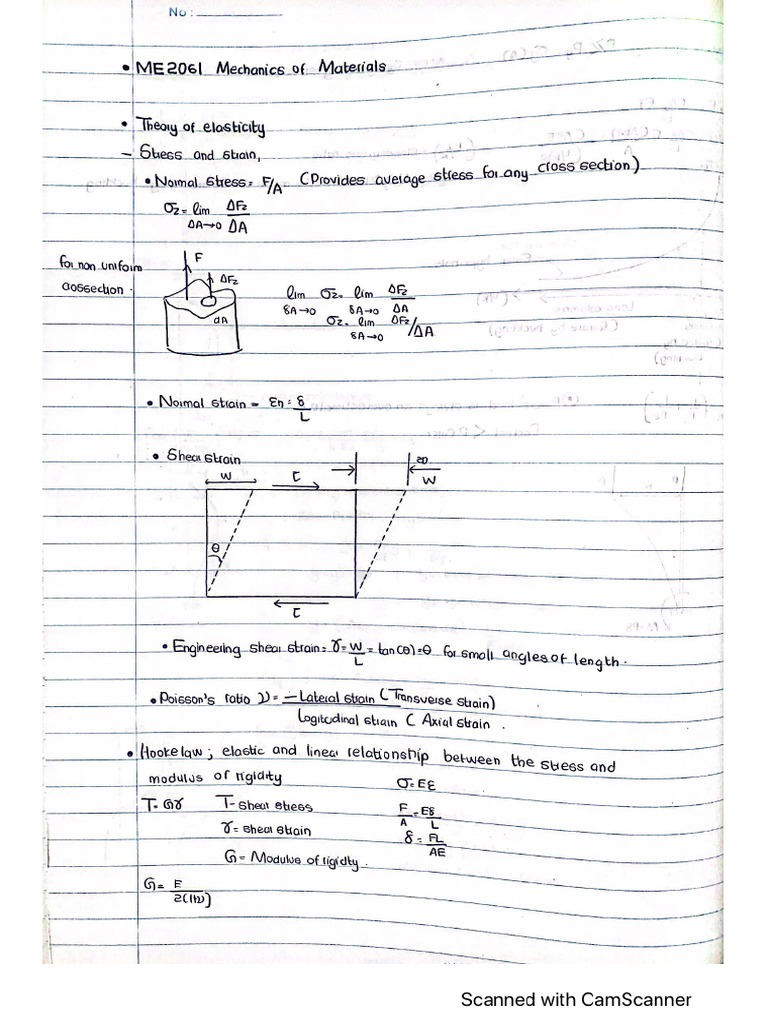 No :
• ME2061 Mechanics of Materials
• Theory of elasticity
– Stress and strain,
• Normal stress = F/A (Provides average stress for any cross section)
σz = lim ΔFz
ΔA→0 ΔA
for non uniform
crossection.
F
ΔFz
dA
lim σz = lim ΔFz
δA→0 δA→0 ΔA
σz = lim ΔFz/ΔA
δA→0
• Normal strain = εn = δ
L
• Shear strain
W τ W
θ
τ
• Engineering shear strain = γ = W = tan(θ) = θ for small angles of length.
L
• Poisson's ratio ν = – Lateral strain (Transverse strain)
Logitudinal strain ( Axial strain .
• Hooke law; elastic and linear relationship between the stress and
modulus of rigidity
σ = Eε
T = Gγ T - shear stress
F = Eδ
A L
γ = shear strain
δ = FL
AE
G = Modulus of rigidty.
G = E
2(1+ν)
Scanned with CamScanner